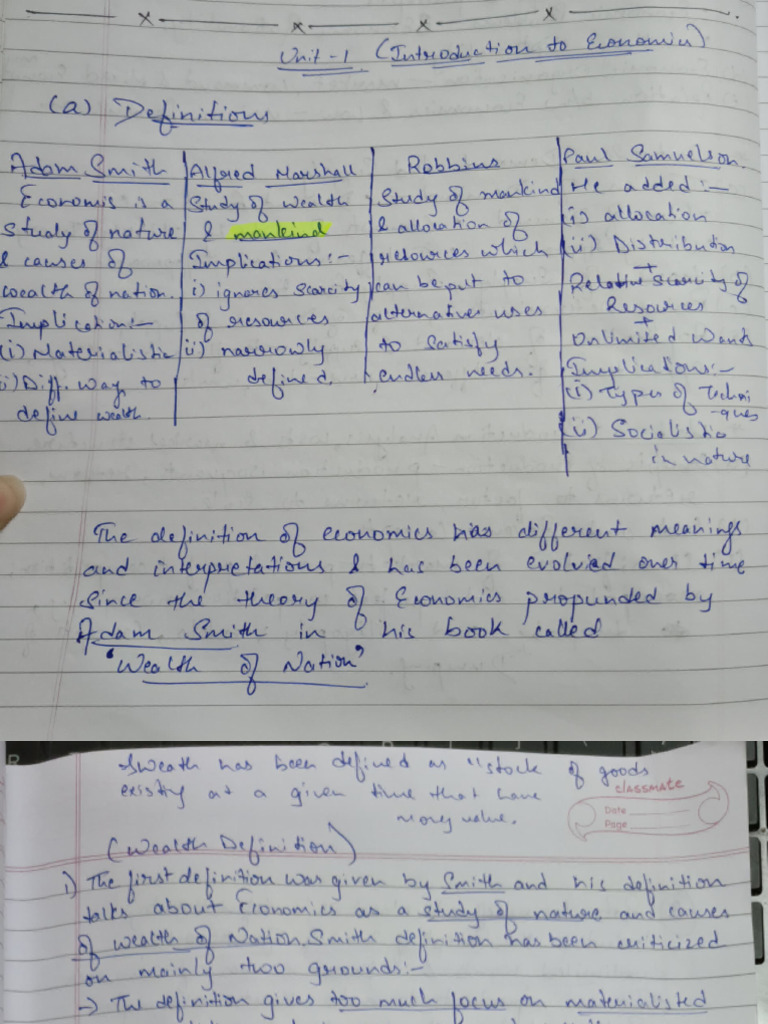 Unit-1 (Introduction to Economics)
(a) Definitions
Adam Smith
Economis is a
study of nature
& causes of
wealth of nation.
Implication:-
(i) Materialistic
i) Diff. way to
define wealth.
Alfred Marshall
Study of wealth
& mankind
Implications:-
i) ignores scarcity
of resources
ii) narrowly
defined.
Robbins
Study of mankind
& allocation of
resources which
can be put to
alternative uses
to satisfy
endless needs.
Paul Samuelson.
He added:-
(i) allocation
(ii) Distribution
+
Relative scarcity of
Resources
+
Unlimited Wants
Implications:-
(i) Types of Techni
-ques
(ii) Socialistic
in nature
The definition of economics has different meanings
and interpretations & has been evolvied over time
since the theory of Economics propunded by
Adam Smith in his book called
"Wealth of Nation"
weath has been defined as "stock of goods
existing at a given time that have
money value.
classmate
Date
Page
(Wealth Definition)
i) The first definition was given by Smith and his definition
talks about Economics as a study of nature and causes
of wealth of Nation. Smith definition has been criticized
on mainly two grounds:-
→ The definition gives too much focus on materialisted